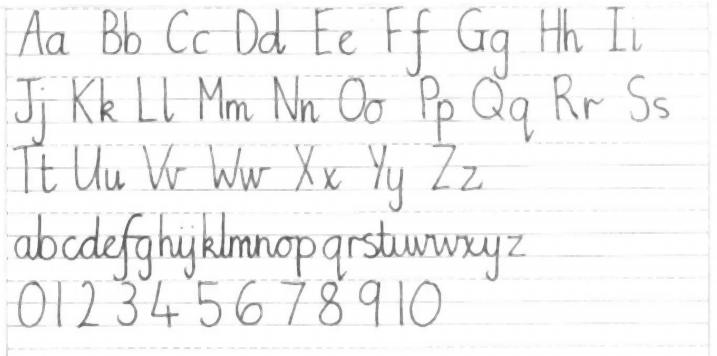 Aa Bb Cc Dd Ee Ff Gg Hh Ii
Jj Kk Ll Mm Nn Oo Pp Qq Rr Ss
Tt Uu Vv Ww Xx Yy Zz
abcdefghijklmnopqrstuvwxyz
0 1 2 3 4 5 6 7 8 9 10